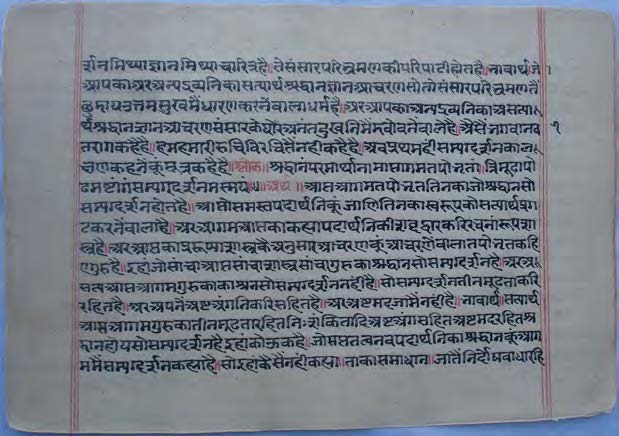 र्शनमिथ्याज्ञानमिथ्याचारित्रहै॥ते संसारपरिभ्रमणकीपरिपाटीहोतहै॥भावार्थ॥जे
आपकाअरअन्यद्रव्यनिकासत्यार्थश्रद्धानज्ञानआचरणसोतोसंसारपरिभ्रमणतें
छुडायउत्तमसुखमैंधारणकरनेवालाधर्महै॥अरआपकाअन्यद्रव्यनिकाअसत्या
र्थश्रद्धानज्ञानआचरणसंसारकेघोरअनंतदुखनिमैंडबोवनेवालेहैं॥ऐसैंभगवानव
तरागकहैहैं॥हमहमारीरुचिविरचितनहीकहैहैं॥अबप्रथमहीसम्यग्दर्शनकाल
क्षणकहनेकूंसूत्रकहैहैं॥श्लोक॥श्रद्धानंपरमार्थानामाप्तागमतपोभृतां॥त्रिमूढापो
ढमष्टांगंसम्यग्दर्शनमस्मयं॥४॥अर्थ॥आप्तआगमतपोभृततिनकाजोश्रद्धानसो
सम्यग्दर्शनहोतहै॥आप्तोसमस्तपदार्थनिकूंजाणितिनकास्वरूपकोसत्यार्थप्रग
टकरनेवालाहै॥अरआगमआप्तकाकह्यापदार्थनिकीशब्दद्वारकरिरचनारूपशा
स्त्रहै॥अरआप्तकाप्ररूप्याशास्त्रकेअनुसारआचरणकूंआचरनेवालातपोभृतकहि
एगुरुहै॥इहांजोसांचाआप्तसांचाशास्त्रसांचागुरुकाश्रद्धानसोसम्यग्दर्शनहै॥अर
सत्यआप्तआगमगुरुकाश्रद्धानसम्यग्दर्शननहीहै॥सोसम्यग्दर्शनतीनमूढताकरि
रहितहै॥अरअपनेअष्टअंगनिकरिसहितहै॥अरअष्टमदजामैंनहीहै॥भावार्थ॥सत्यार्थ
आप्तआगमगुरुकातीनमूढतारहितनिःशंकितादिअष्टअंगसहितअष्टमदरहितश्र
द्धानहोयसोसम्यग्दर्शनहै॥इहांकोऊकहै॥जोसप्ततत्वनवपदार्थनिकाश्रद्धानकूंआग
ममैंसम्यग्दर्शनकह्याहै॥सोइहांकैसैंनहीकह्या॥ताकासमाधान॥जातैंनिर्दोषबाधारहि